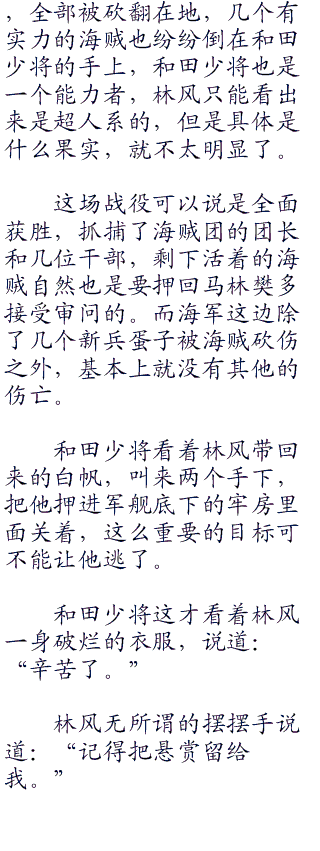 ，全部被砍翻在地，几个有
实力的海贼也纷纷倒在和田
少将的手上，和田少将也是
一个能力者，林风只能看出
来是超人系的，但是具体是
什么果实，就不太明显了。
这场战役可以说是全面
获胜，抓捕了海贼团的团长
和几位干部，剩下活着的海
贼自然也是要押回马林樊多
接受审问的。而海军这边除
了几个新兵蛋子被海贼砍伤
之外，基本上就没有其他的
伤亡。
和田少将看着林风带回
来的白帆，叫来两个手下，
把他押进军舰底下的牢房里
面关着，这么重要的目标可
不能让他逃了。
和田少将这才看着林风
一身破烂的衣服，说道：
“辛苦了。”
林风无所谓的摆摆手说
道：“记得把悬赏留给
我。”